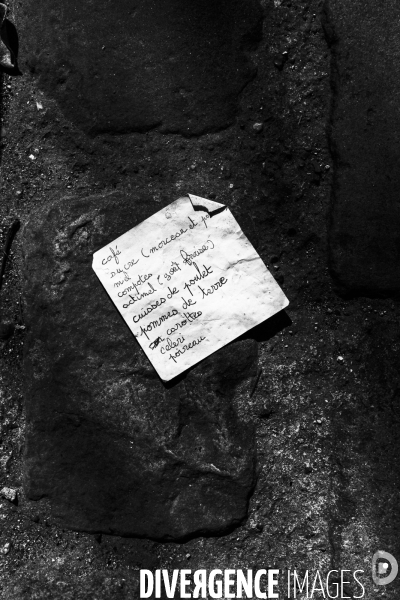 café
sucre (morceau et p
compotes
actimel (goût fraise)
cuisses de poulet
pommes de terre
carottes
céleri
poireau
DIVERGENCE IMAGES